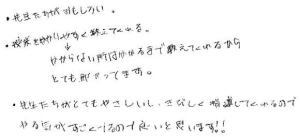 ・先生たちがおもしろい。
・授業を分かりやすく教えてくれる。
↓
わからない所は分かるまで教えてくれるから
とても助かってます。
・先生たちがとてもやさしいし、きびしく指導してくれるので
やる気がすごくでるので良いと思います!!